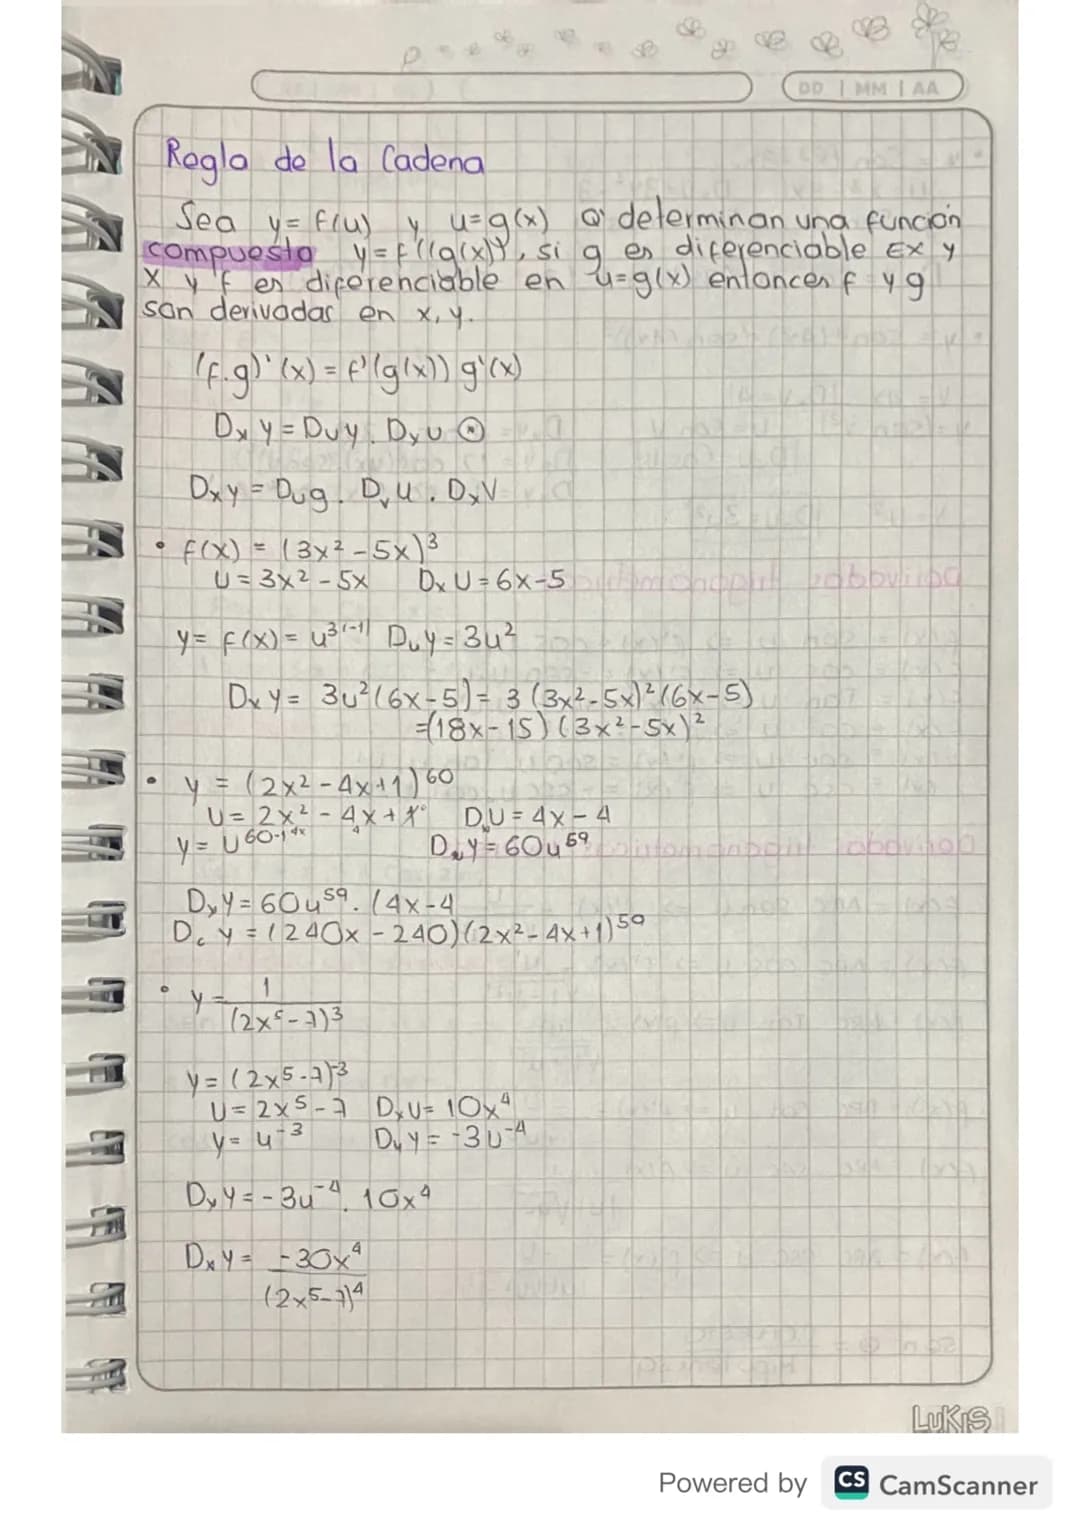 DD | MM | AA
Regla de la Cadena
Sea y = f(u) y u=g(x) a determinan una función
compuesta y = f'((g(x)), si g es diferenciable Ex y
x y f es diferenciable en u=g(x) entonces f y g
son derivadas en x, y.
(f.g)'(x) = f'(g(x)) g'(x)
Dx y = Duy . Dxu
Dxy = Dug . Dvu . DxV
• f(x) = (3x² - 5x)³
U = 3x² - 5x Dx U = 6x-5
y = f(x) = u³⁽⁻¹⁾ Duy = 3u²
Dx y = 3u²(6x-5) = 3 (3x²-5x)² (6x-5)
=(18x-15)(3x²-5x)²
• y = (2x² - 4x+1)⁶⁰
U = 2x² - 4x + 1 DxU = 4x - 4
y = U⁶⁰⁻¹ DuY = 60u⁵⁹
DxY = 60u⁵⁹. (4x-4
Dc y = (240x - 240)(2x² - 4x+1)⁵⁹
• y = 1
(2x⁵-7)³
y = (2x⁵-7)⁻³
U = 2x⁵-7 DxU = 10x⁴
y = u⁻³ DuY = -3u⁻⁴
DxY = -3u⁻⁴. 10x⁴
DxY = -30x⁴
(2x⁵-7)⁴
LUKIS
Powered by CS CamScanner